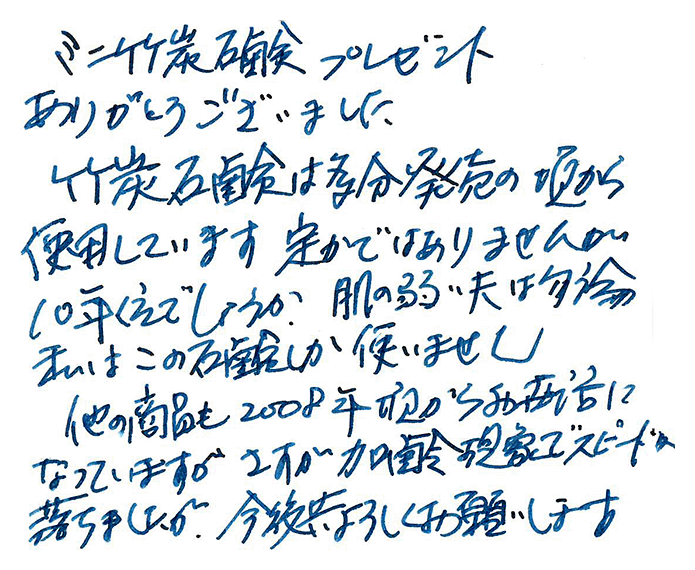 ミニ竹炭石鹸 プレゼント
ありがとうございました
竹炭石鹸は多分発売の頃から
使用しています 定かではありませんが
10年位でしょうか、肌の弱い夫は勿論
私はこの石鹸しか使いません
他の商品も2008年頃からお世話に
なっていますが さすが加齢現象でスピードが
落ちましたが、今後共よろしくお願いします